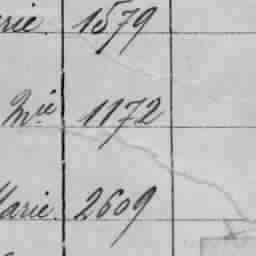 rie. 1579
Mie 1172
Marie. 2609